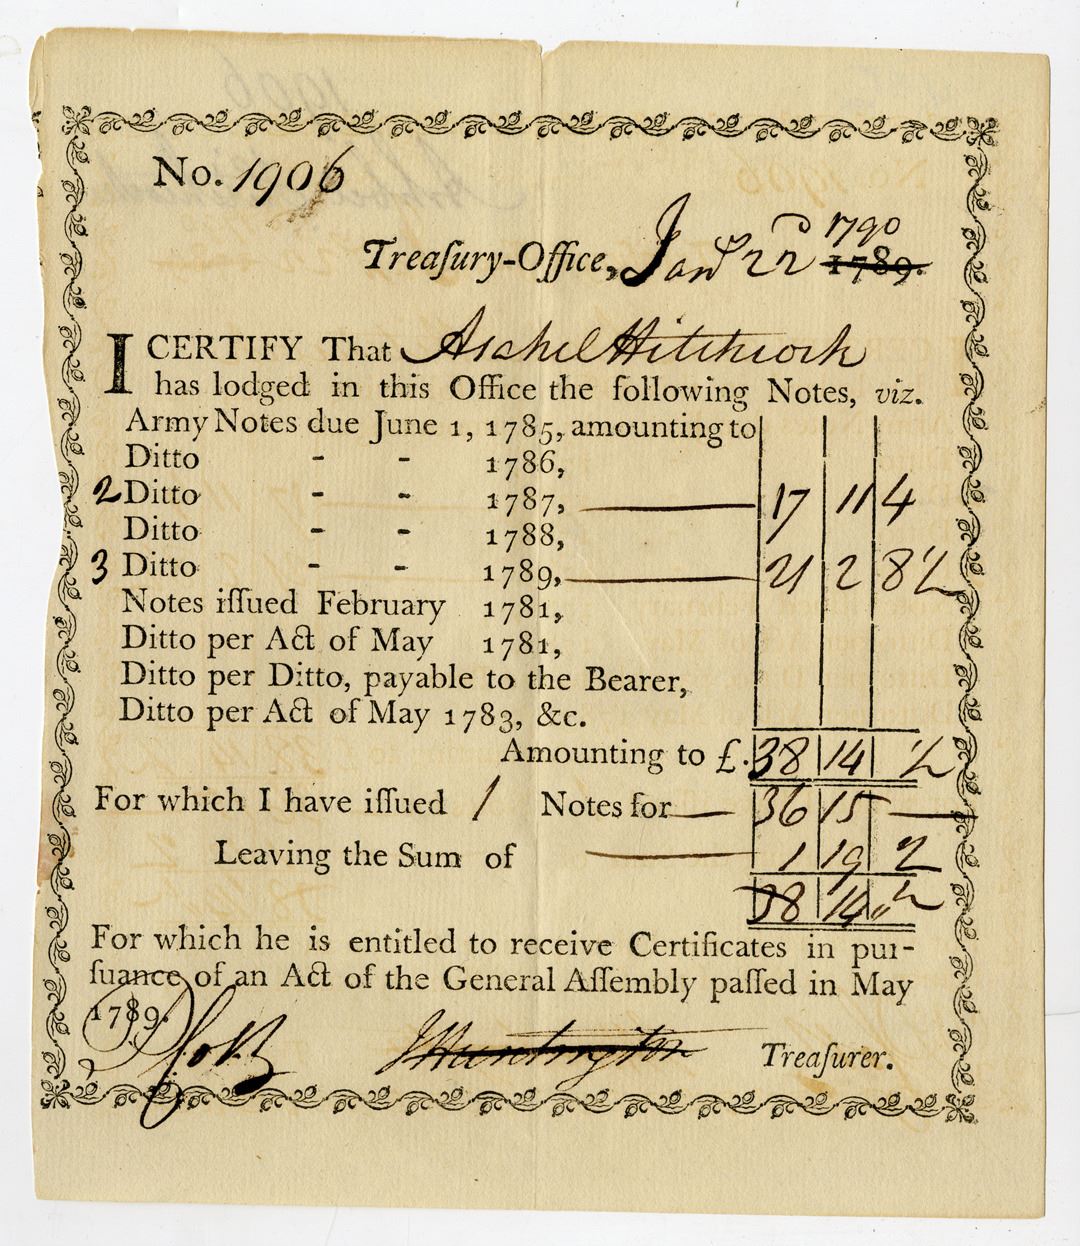 No. 1906
1790
Treaſury-Office, Janʸ 22ᵈ 1789.
I CERTIFY That Asahel Hitchcock
has lodged in this Office the following Notes, viz.
Army Notes due June 1, 1785, amounting to
Ditto - - 1786,
2 Ditto - - 1787, 17 11 4
Ditto - - 1788,
3 Ditto - - 1789, 21 2 8½
Notes iſſued February 1781,
Ditto per Act of May 1781,
Ditto per Ditto, payable to the Bearer,
Ditto per Act of May 1783, &c.
Amounting to £. 38 14 ½
For which I have iſſued 1 Notes for 36 15
Leaving the Sum of 1 19 2
38 14 " ½
For which he is entitled to receive Certificates in pur-
ſuance of an Act of the General Aſſembly paſſed in May
1789.
J Huntington Treaſurer.